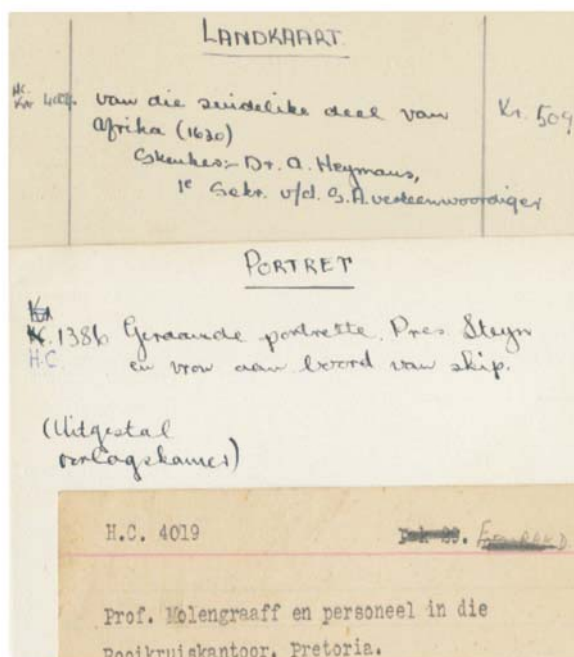 LANDKAART
HC. Kr. van die suidelike deel van Kr. 509
Afrika (1630)
Skenker:- Dr. A. Heymans,
1e Sekr. v/d. S.A. verteenwoordiger
PORTRET
K. 1386 Geraamde portrette. Pres. Steyn
H.C. en vrou aan boord van skip.
(Uitgestal
oorlogskamer)
H.C. 4019
Prof. Molengraaff en personeel in die
Rooikruiskantoor, Pretoria.